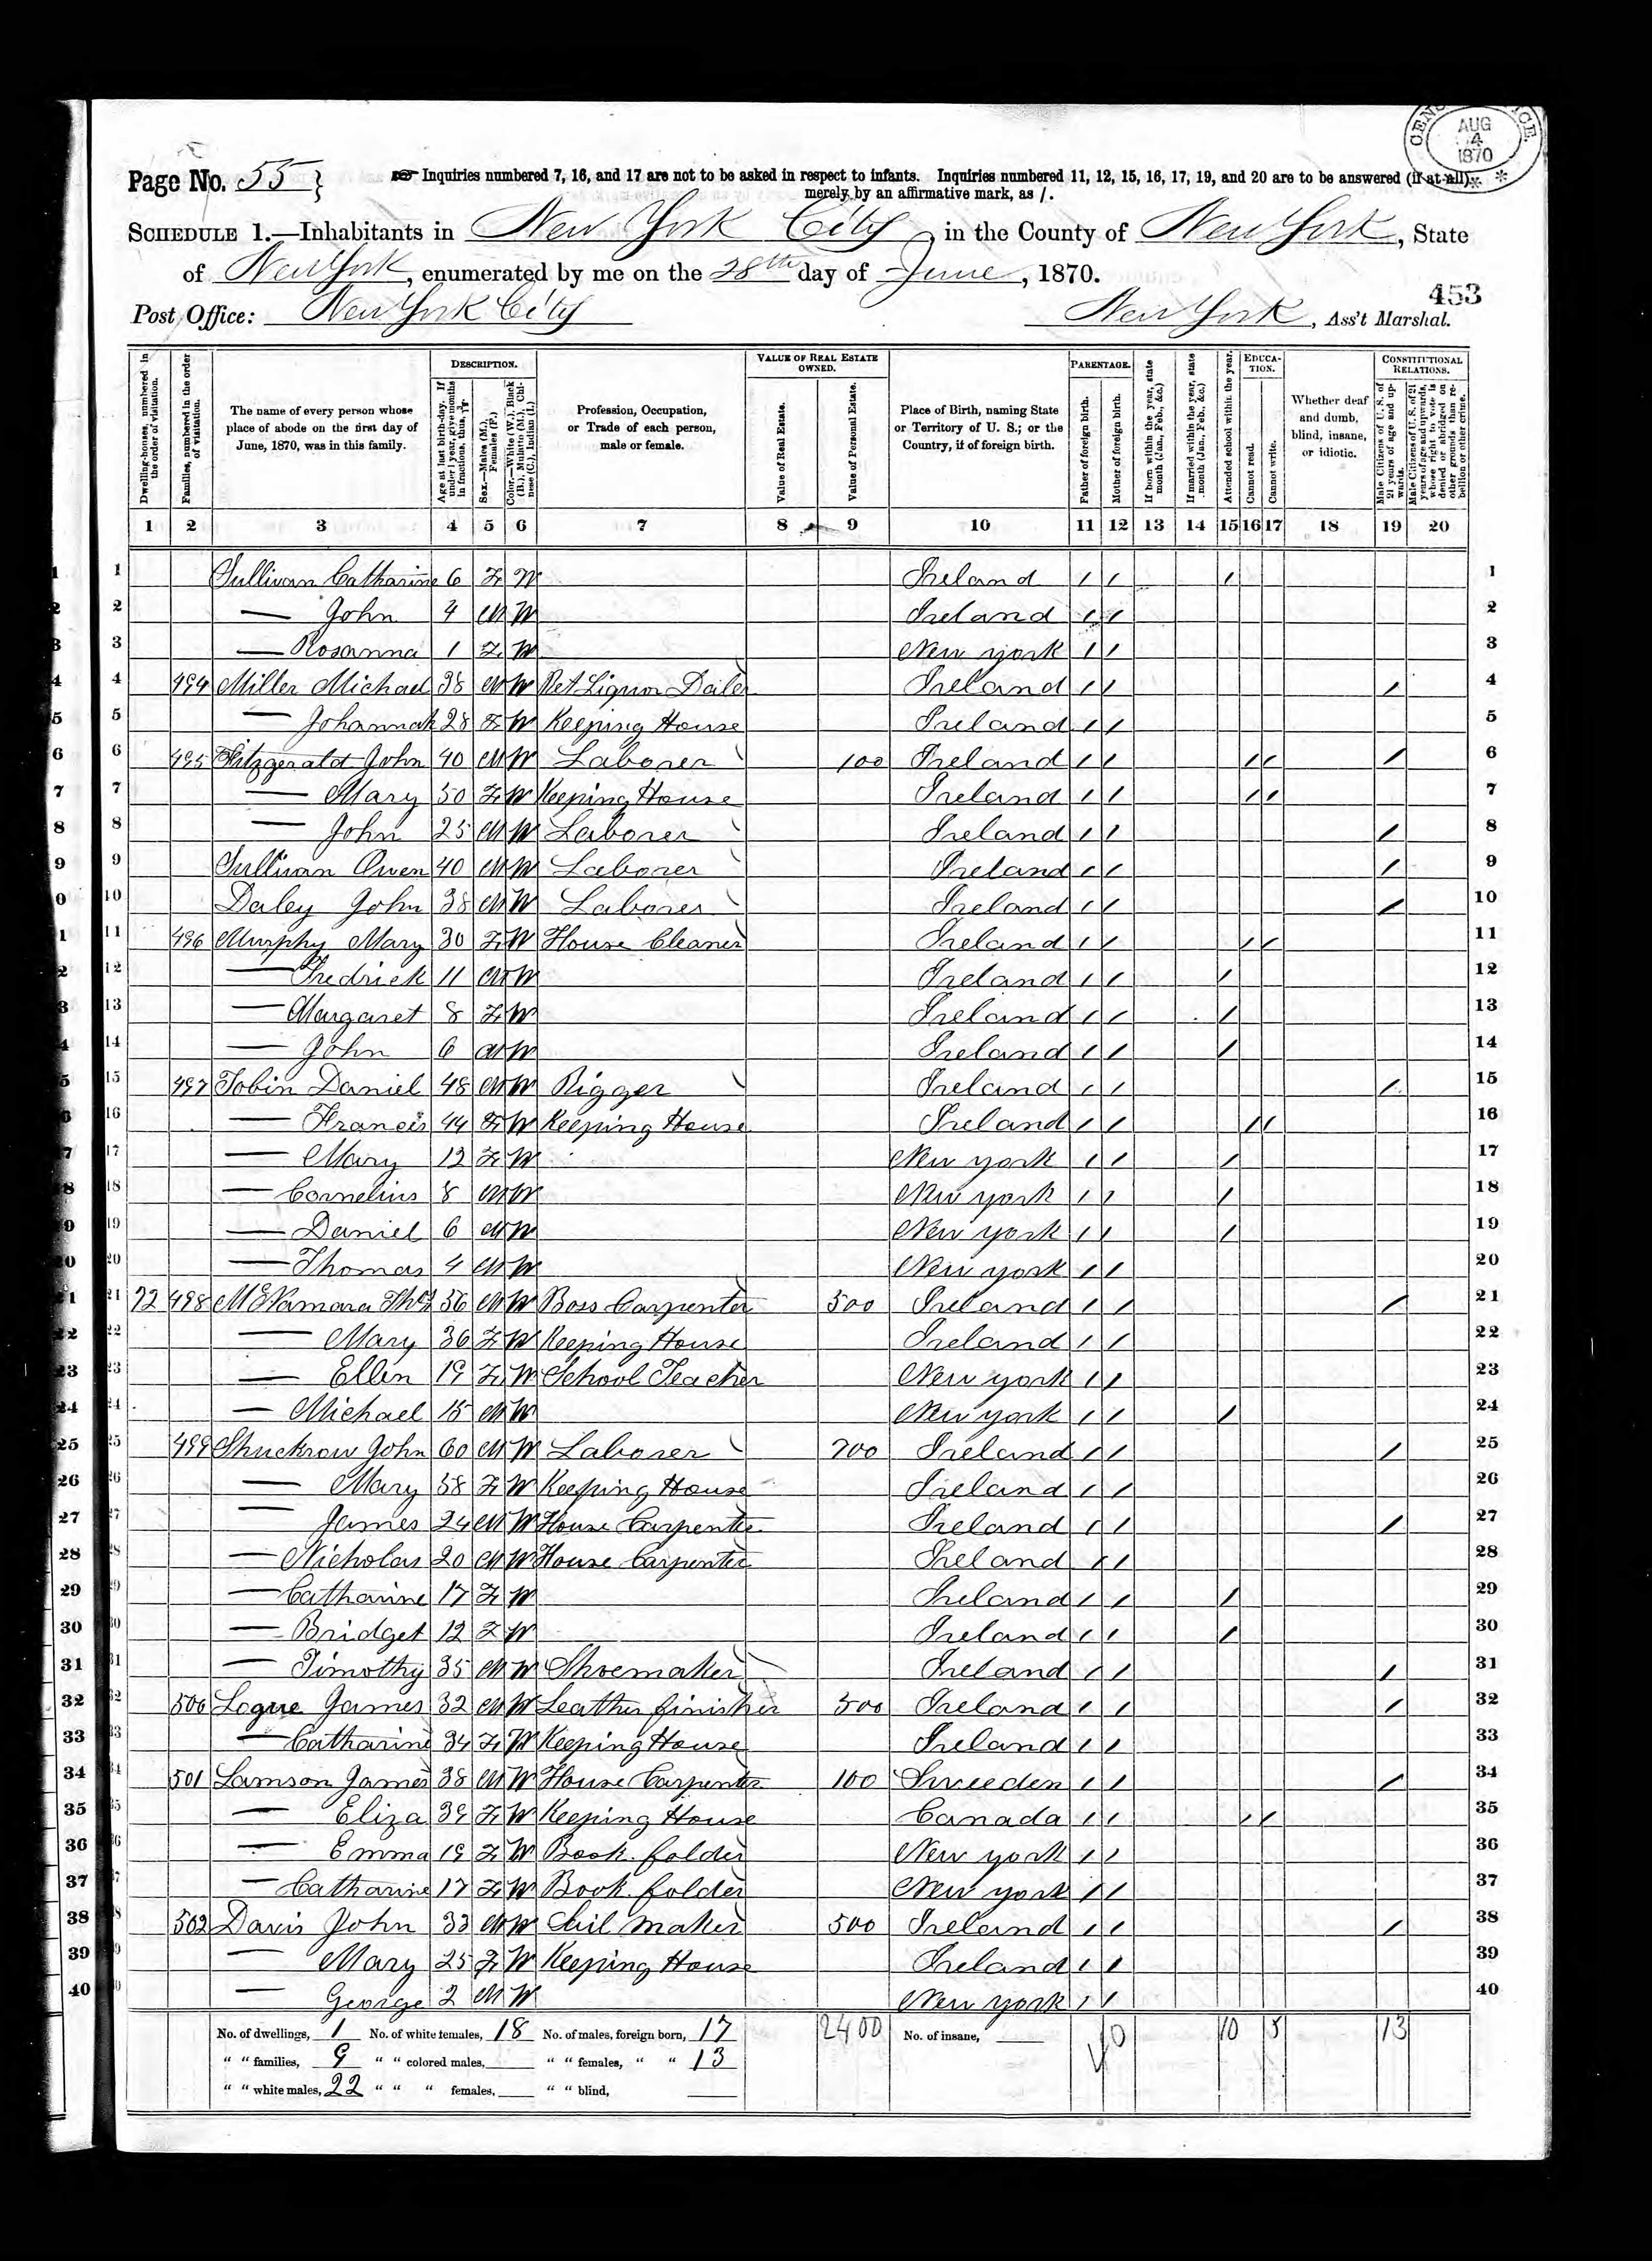 CENSUS OFFICE. AUG 4 1870
Page No. 55
Inquiries numbered 7, 16, and 17 are not to be asked in respect to infants. Inquiries numbered 11, 12, 15, 16, 17, 19, and 20 are to be answered (if at all)
merely by an affirmative mark, as /.
SCHEDULE 1.—Inhabitants in New York City, in the County of New York, State
of New York, enumerated by me on the 28th day of June, 1870.
453
Post Office: New York City New York, Ass't Marshal.
Dwelling-houses, numbered in the order of visitation.
Families, numbered in the order of visitation.
The name of every person whose place of abode on the first day of June, 1870, was in this family.
DESCRIPTION.
Age at last birth-day. If under 1 year, give months in fractions, thus, 3/12.
Sex.—Males (M.), Females (F.)
Color.—White (W.), Black (B.), Mulatto (M.), Chinese (C.), Indian (I.)
Profession, Occupation, or Trade of each person, male or female.
VALUE OF REAL ESTATE OWNED.
Value of Real Estate.
Value of Personal Estate.
Place of Birth, naming State or Territory of U. S.; or the Country, if of foreign birth.
PARENTAGE.
Father of foreign birth.
Mother of foreign birth.
If born within the year, state month (Jan., Feb., &c.)
If married within the year, state month (Jan., Feb., &c.)
Attended school within the year.
EDUCATION.
Cannot read.
Cannot write.
Whether deaf and dumb, blind, insane, or idiotic.
CONSTITUTIONAL RELATIONS.
Male Citizens of U. S. of 21 years of age and upwards.
Male Citizens of U. S. of 21 years of age and upwards, whose right to vote is denied or abridged on other grounds than rebellion or other crime.
1 2 3 4 5 6 7 8 9 10 11 12 13 14 15 16 17 18 19 20
1 Sullivan Catharine 6 F W Ireland / / / 1
2 — John 4 M W Ireland / / 2
3 — Rosanna 1 F W New York / / 3
4 494 Miller Michael 38 M W Ret Liquor Daler Ireland / / / 4
5 — Johannah 28 F W Keeping House Ireland / / 5
6 495 Fitzgerald John 40 M W Laborer 100 Ireland / / / / / 6
7 — Mary 50 F W Keeping House Ireland / / / / 7
8 — John 25 M W Laborer Ireland / / / 8
9 Sullivan Owen 40 M W Laborer Ireland / / / 9
10 Daley John 38 M W Laborer Ireland / / / 10
11 496 Murphy Mary 30 F W House Cleaner Ireland / / / / 11
12 — Fredrick 11 M W Ireland / / / 12
13 — Margaret 8 F W Ireland / / / 13
14 — John 6 M W Ireland / / / 14
15 497 Tobin Daniel 48 M W Rigger Ireland / / / 15
16 — Francis 44 F W Keeping House Ireland / / / / 16
17 — Mary 12 F W New York / / / 17
18 — Cornelius 8 M W New York / / / 18
19 — Daniel 6 M W New York / / / 19
20 — Thomas 4 M W New York / / 20
21 72 498 McNamara Thos 56 M W Boss Carpenter 500 Ireland / / / 21
22 — Mary 36 F W Keeping House Ireland / / 22
23 — Ellen 19 F W School Teacher New York / / 23
24 — Michael 15 M W New York / / / 24
25 499 Shuckrow John 60 M W Laborer 700 Ireland / / / 25
26 — Mary 58 F W Keeping House Ireland / / 26
27 — James 24 M W House Carpenter Ireland / / / 27
28 — Nicholas 20 M W House Carpenter Ireland / / 28
29 — Catharine 17 F W Ireland / / / 29
30 — Bridget 12 F W Ireland / / / 30
31 — Timothy 35 M W Shoemaker Ireland / / / 31
32 500 Logue James 32 M W Leather finisher 500 Ireland / / / 32
33 — Catharine 34 F W Keeping House Ireland / / 33
34 501 Lamson James 38 M W House Carpenter 100 Sweeden / / / 34
35 — Eliza 39 F W Keeping House Canada / / / / 35
36 — Emma 19 F W Book folder New York / / 36
37 — Catharine 17 F W Book folder New York / / 37
38 502 Davis John 33 M W maker 500 Ireland / / / 38
39 — Mary 25 F W Keeping House Ireland / / 39
40 — George 2 M W New York / / 40
No. of dwellings, 1 No. of white females, 18 No. of males, foreign born, 17 2400 No. of insane, 40 10 5 13
" " families, 9 " " colored males, " " females, " " 13
" " white males, 22 " " " females, " " blind,